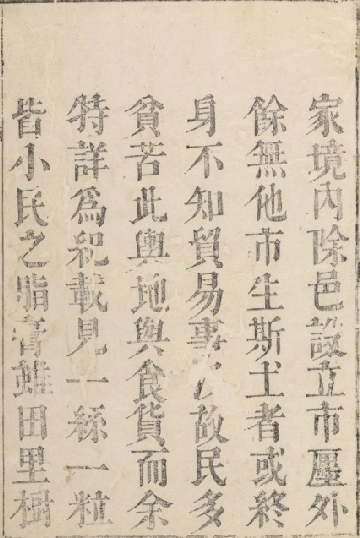 家境內除邑設立市廛外
餘無他市生斯土者或終
身不知貿易事故民多
貧苦此輿地與食貨而余
特詳為紀載見一絲一粒
皆小民之脂膏雖田里樹